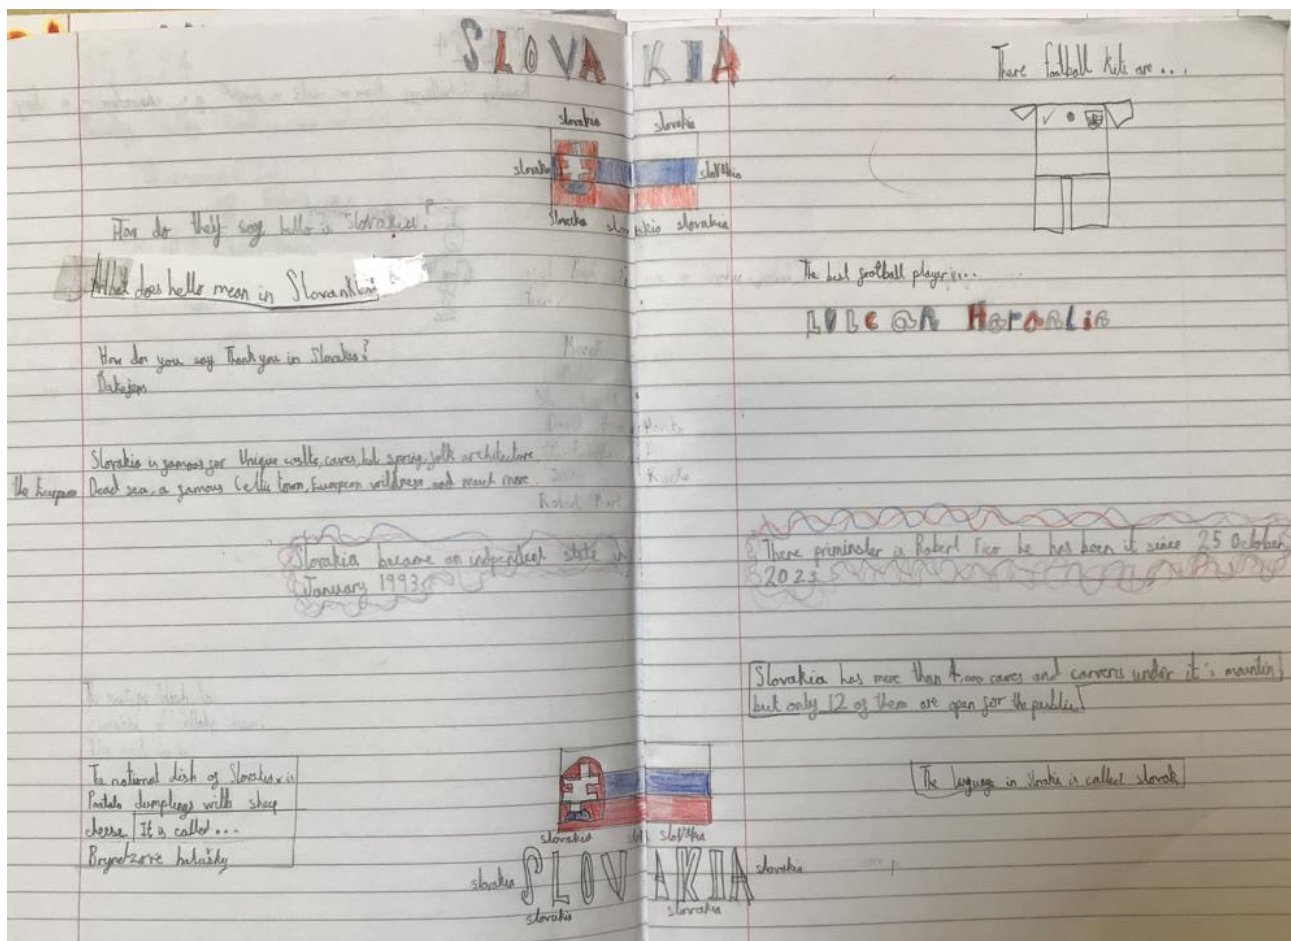 SLOVAKIA
slovakia slovakia
slovakia slovakia
slovakia slovakia slovakia
How do they say hello in Slovakia?
What does hello mean in
How do you say Thank you in Slovakia?
Dakejem
Slovakia is famous for Unique castle, caves, hot spring, folk architecture,
the European Dead sea, a famous Celtic town, European wildness and much more.
Slovakia became an indepndent state in
January 1993
The national dish of Slovakia is
Potato dumplings with sheep
cheese It is called...
Bryndzove halušky
There football kits are...
The best football player is...
There priminster is Robert Fico he has been it since 25 October
2023
Slovakia has more than 4,000 caves and carvens under it's mountin
but only 12 of them are open for the public
The language in Slovakia is called slovak
slovakia slovakia
slovakia SLOVAKIA slovakia
slovakia slovakia